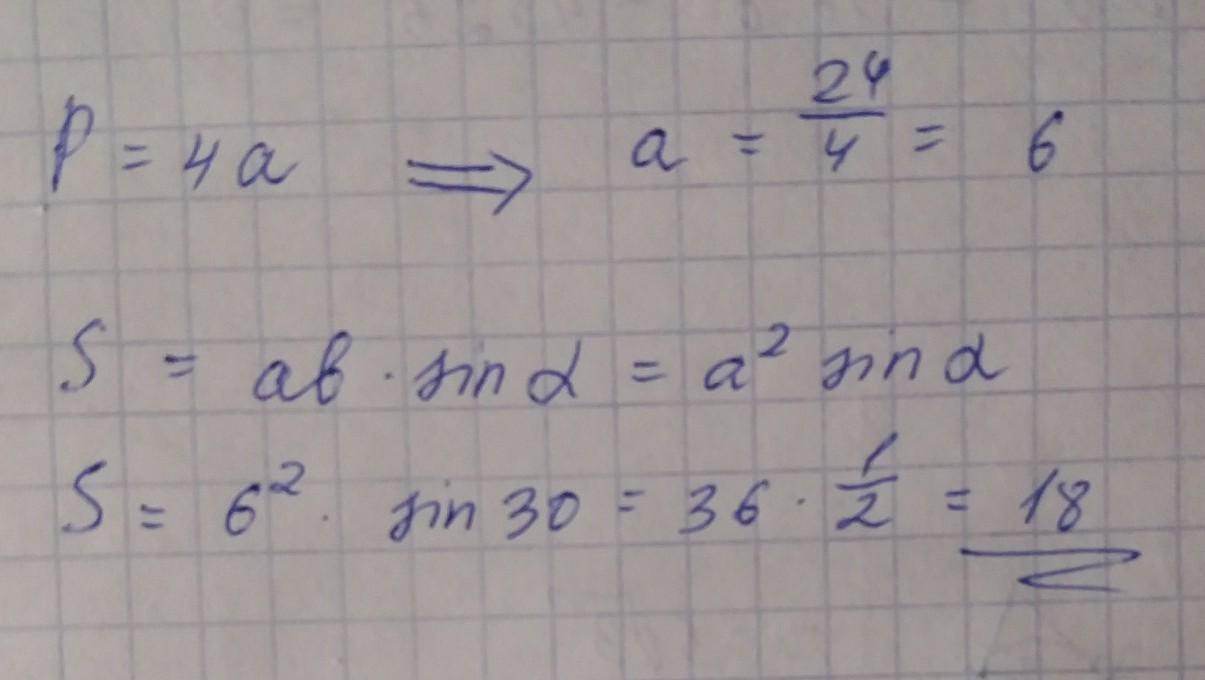 P = 4a ⟹ a = 24/4 = 6
S = ab · sin α = a² sin α
S = 6² · sin 30 = 36 · 1/2 = 18